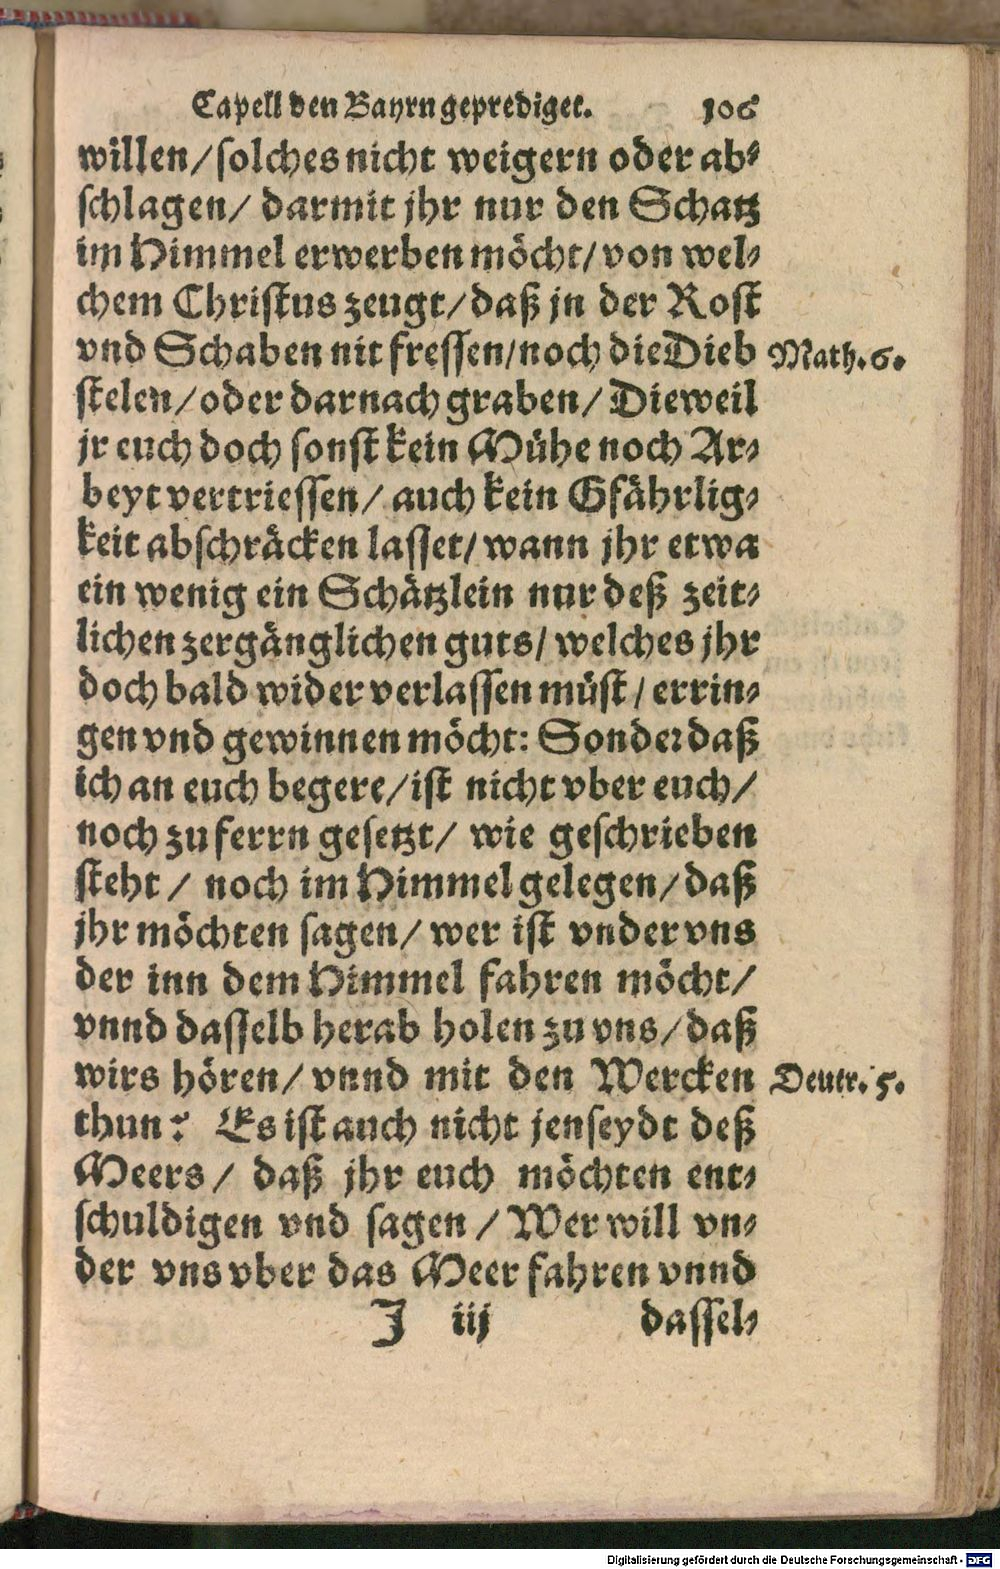 Capell den Bayrn geprediget. 106
willen/solches nicht weigern oder ab-
schlagen/ darmit jhr nur den Schatz
im Himmel erwerben möcht/von wel-
chem Christus zeugt/daß jn der Rost
vnd Schaben nit fressen/noch die Dieb
Math. 6.
stelen/oder darnach graben/ Dieweil
jr euch doch sonst kein Mühe noch Ar-
beyt vertriessen/ auch kein Gfährlig-
keit abschräcken lasset/wann jhr etwa
ein wenig ein Schätzlein nur deß zeit-
lichen zergänglichen guts/welches jhr
doch bald wider verlassen müst/errin-
gen vnd gewinnen möcht: Sonder daß
ich an euch begere/ist nicht vber euch/
noch zu ferrn gesetzt/ wie geschrieben
steht/ noch im Himmel gelegen/daß
jhr möchten sagen/ wer ist vnder vns
der inn dem Himmel fahren möcht/
vnnd dasselb herab holen zu vns/daß
wirs hören/vnnd mit den Wercken
Deutr. 5.
thun? Es ist auch nicht jenseydt deß
Meers/ daß jhr euch möchten ent-
schuldigen vnd sagen/Wer will vn-
der vns vber das Meer fahren vnnd
J iij dassel-
Digitalisierung gefördert durch die Deutsche Forschungsgemeinschaft - DFG